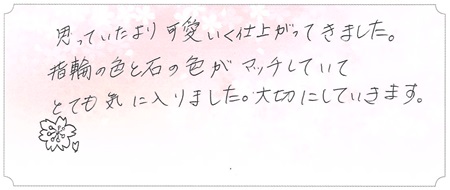 思っていたより可愛いく仕上がってきました。
指輪の色と石の色がマッチしていて
とても気に入りました。大切にしていきます。